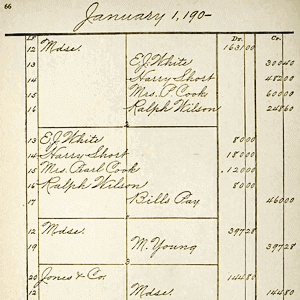 66
January 1, 190-
L.F. Dr. Cr.
12 Mdse. 1631 00
13 E.J. White 300 40
14 Harry Short 482 00
15 Mrs. P. Cook 600 00
16 Ralph Wilson 248 60
2
13 E.J. White 80 00
14 Harry Short 180 00
15 Mrs. Pearl Cook 120 00
16 Ralph Wilson 80 00
17 Bills Pay 460 00
3
12 Mdse. 397 28
19 M. Young 397 28
20 Jones & Co. 144 80
12 Mdse. 144 80